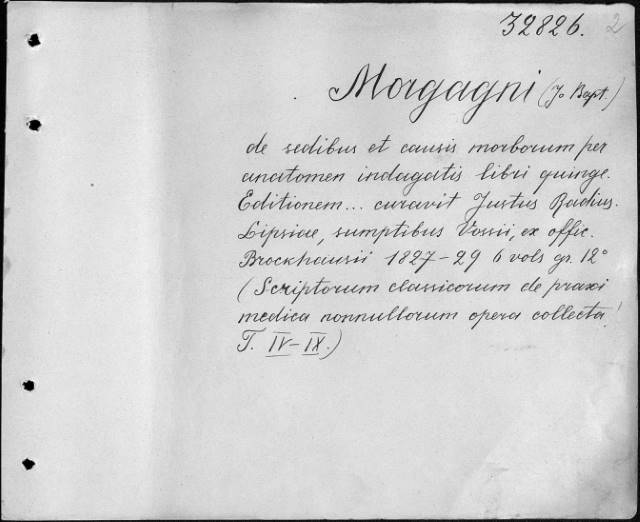 32826. 2
Morgagni (Jo Bapt.)
de sedibus et causis morborum per
anatomen indagatis libri quinqe.
Editionem... curavit Justus Radius.
Lipsiae, sumptibus Vossii, ex offic.
Brockhausii 1827-29 6 vols gr. 12°
(Scriptorum classicorum de praxi
medica nonnullorum opera collecta!
T. IV-IX.)